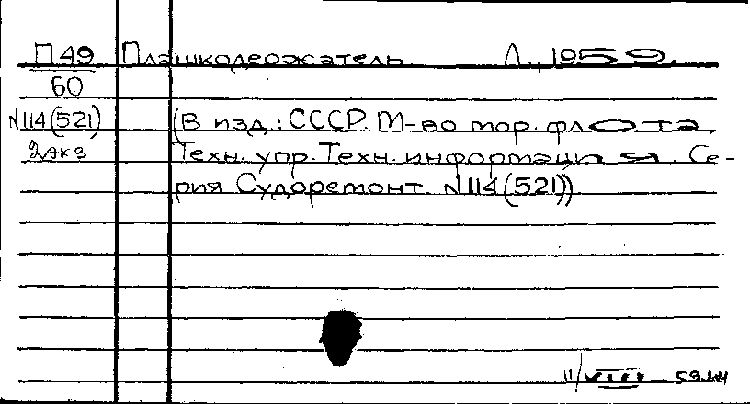 П49 Плашкодержатель Л. 1959.
60
№114(521) (В изд.: СССР. М-во мор. флота.
2 экз Техн. упр. Техн. информация. Се-
рия Судоремонт. №114(521))
11/VIII 59